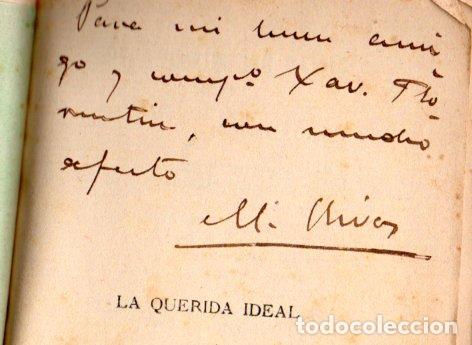 Para mi buen ami-
go y compº Xav. Flo-
rentin, con mucho
afecto
M. Chivas
LA QUERIDA IDEAL
todocoleccion